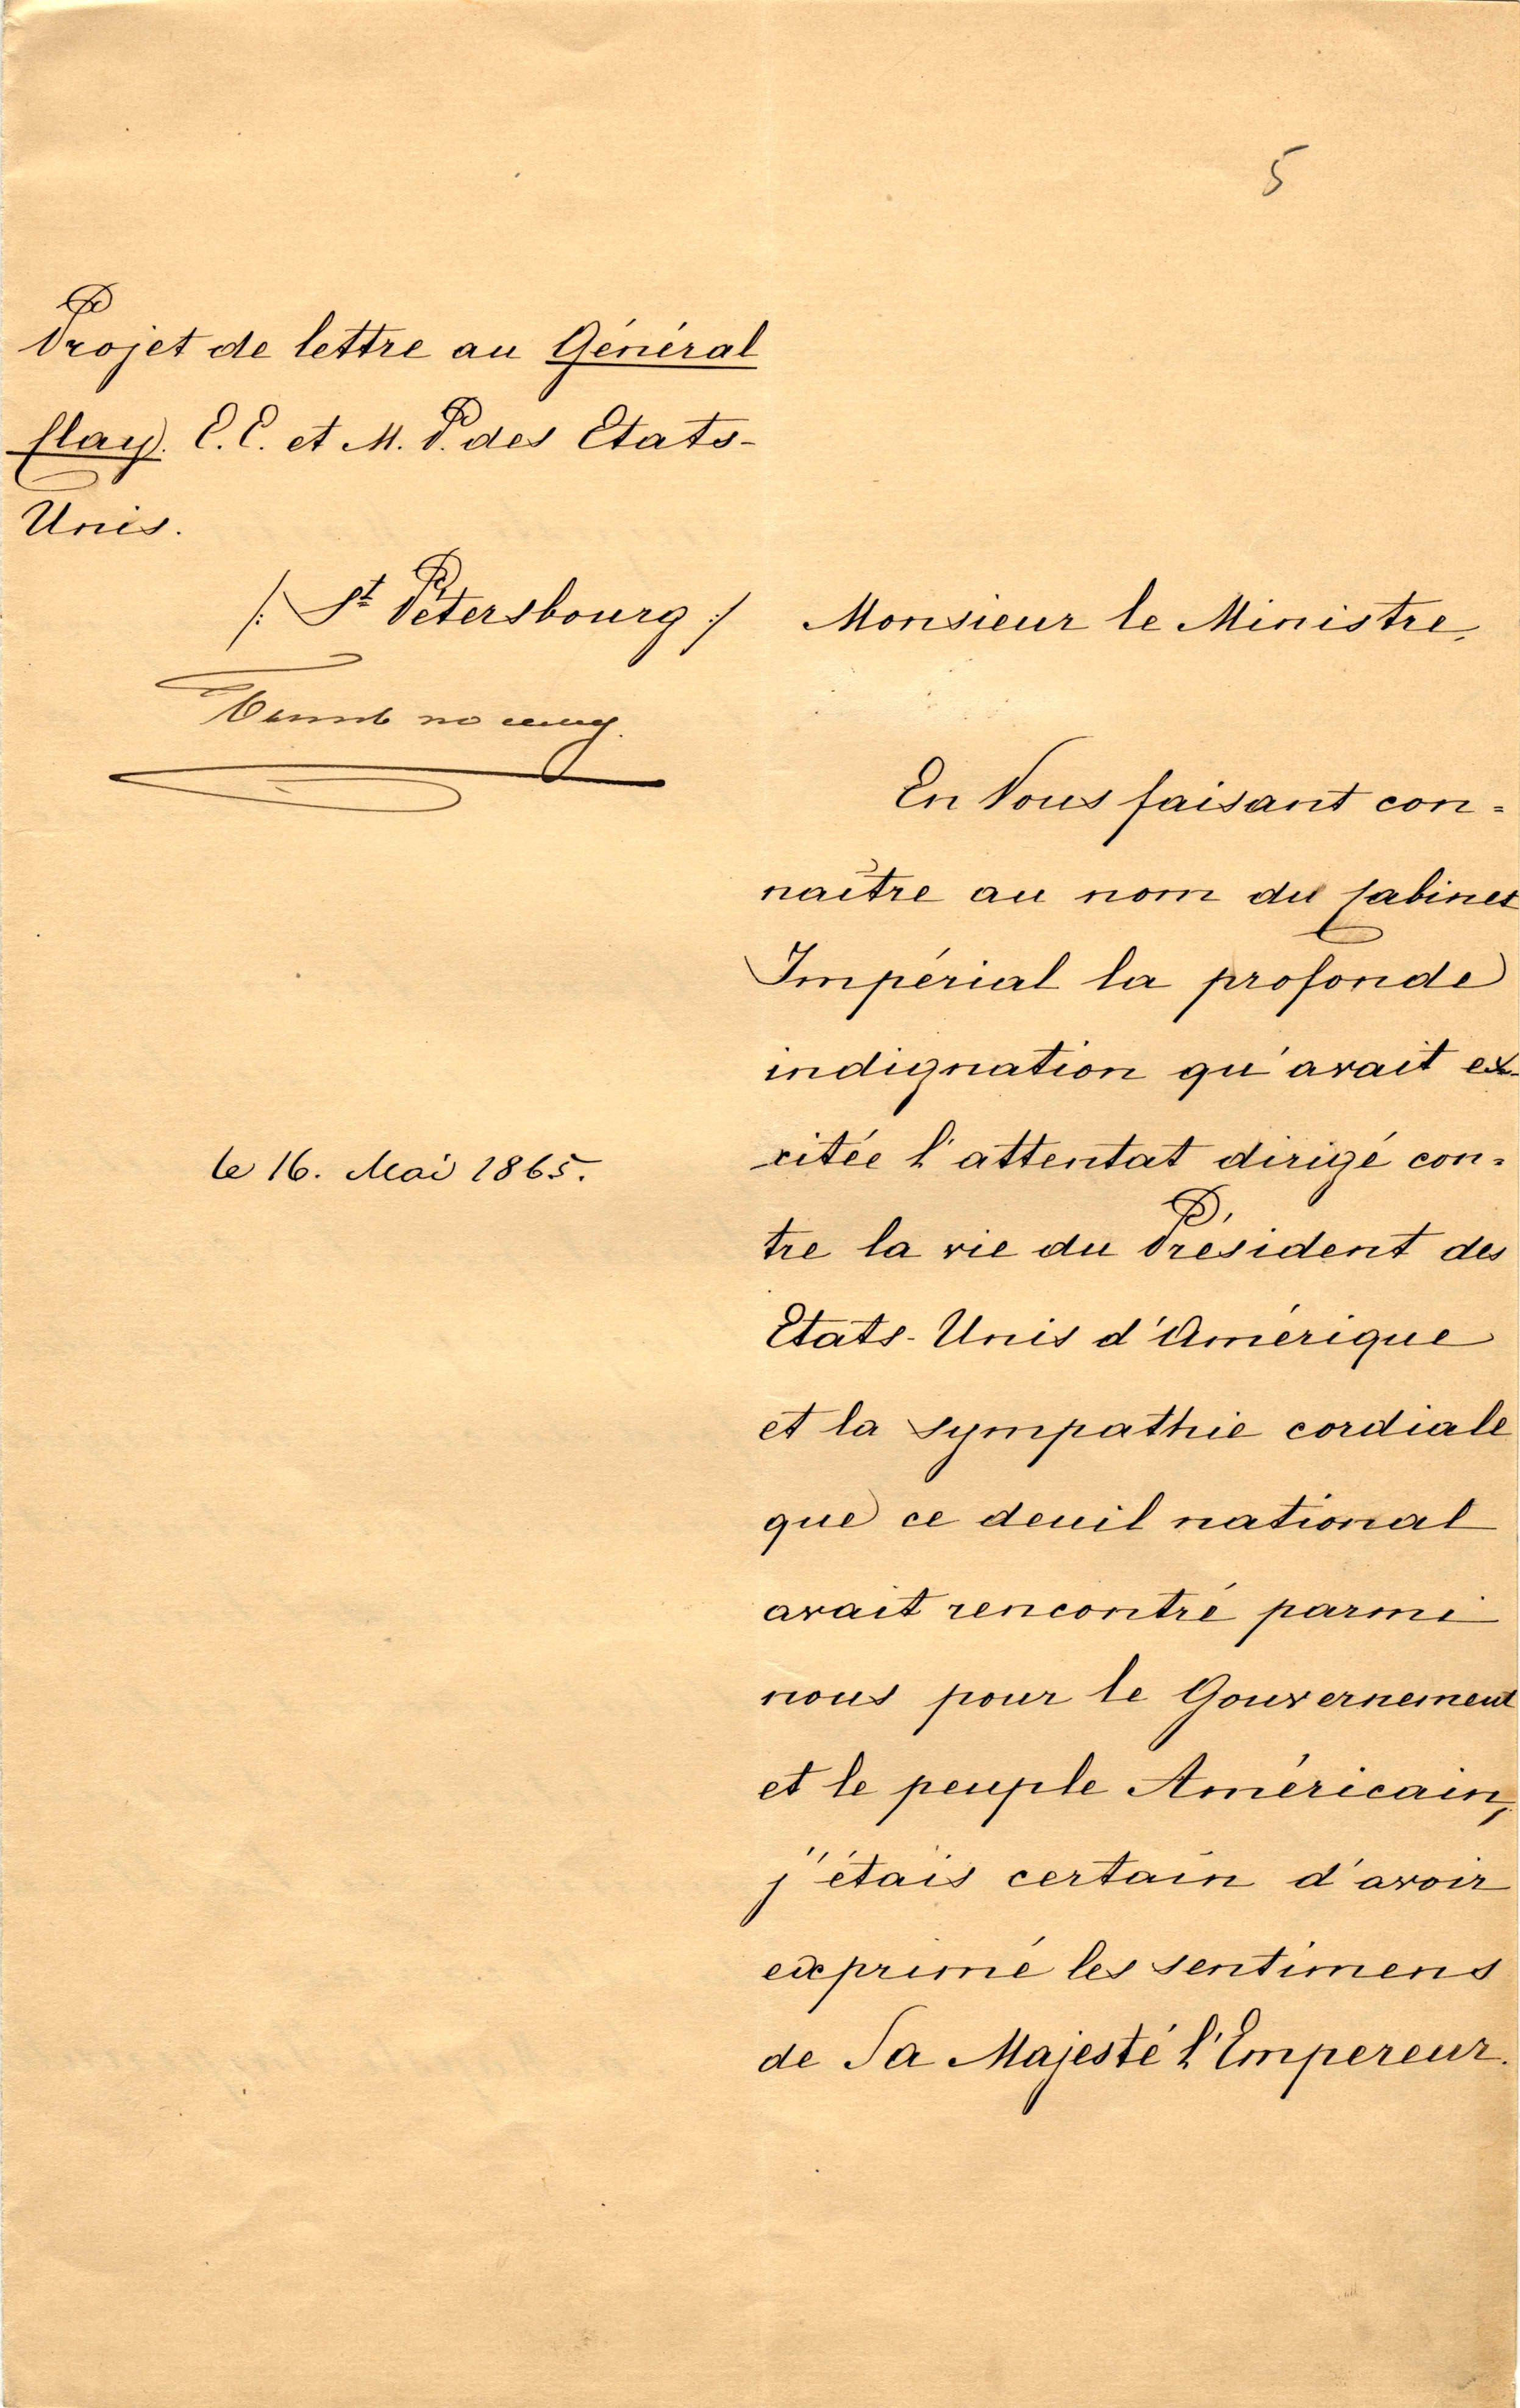 5
Projet de lettre au Général
Clay. E. E. et M. P. des Etats-
Unis.
/: St Pétersbourg :/
Быть по сему.
le 16. Mai 1865.
Monsieur le Ministre,
En Vous faisant con=
naître au nom du Cabinet
Impérial la profonde
indignation qu'avait ex-
citée l'attentat dirigé con=
tre la vie du Président des
Etats-Unis d'Amérique
et la sympathie cordiale
que ce deuil national
avait rencontré parmi
nous pour le Gouvernement
et le peuple Américain,
j'étais certain d'avoir
exprimé les sentimens
de Sa Majesté l'Empereur.